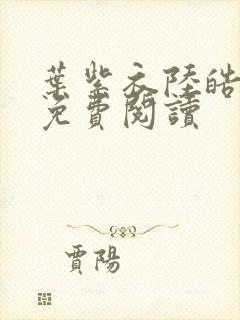 葉紫衣陸皓
免費閱讀
賈陽